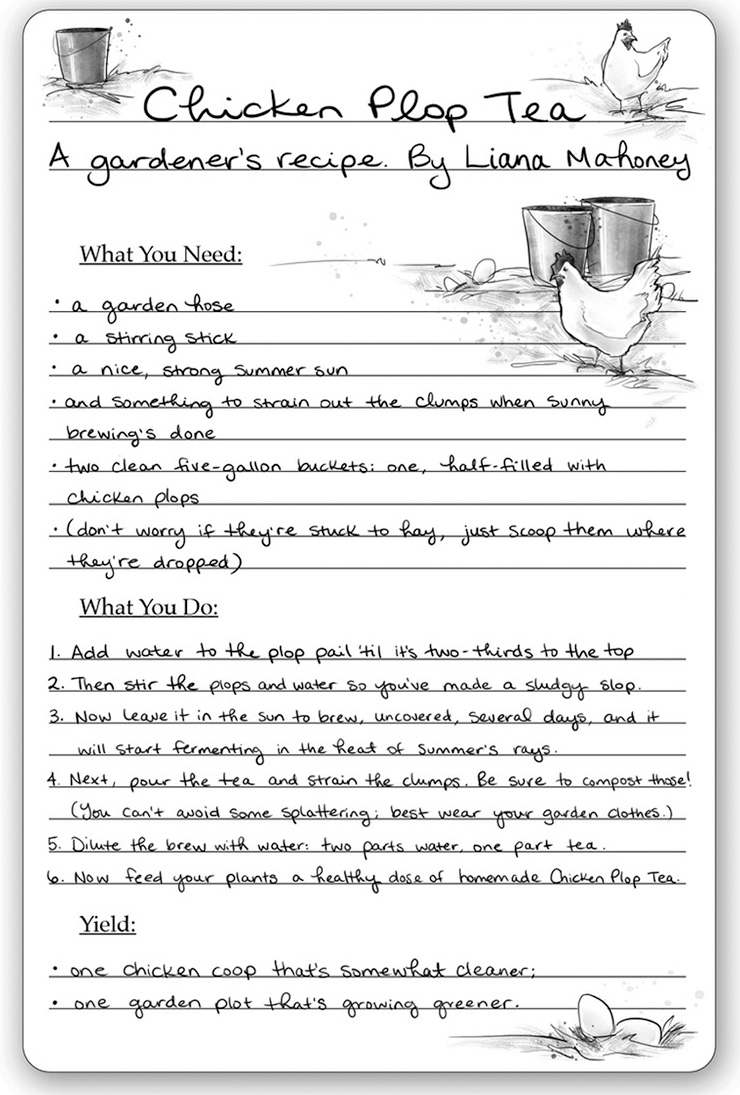 Chicken Plop Tea
A gardener's recipe. By Liana Mahoney
What You Need:
• a garden hose
• a stirring stick
• a nice, strong summer sun
• and something to strain out the clumps when sunny
brewing's done
• two clean five-gallon buckets: one, half-filled with
chicken plops
• (don't worry if they're stuck to hay, just scoop them where
they're dropped)
What You Do:
1. Add water to the plop pail 'til it's two-thirds to the top
2. Then stir the plops and water so you've made a sludgy slop.
3. Now leave it in the sun to brew, uncovered, several days, and it
will start fermenting in the heat of summer's rays.
4. Next, pour the tea and strain the clumps. Be sure to compost those!
(You can't avoid some splattering; best wear your garden clothes.)
5. Dilute the brew with water: two parts water, one part tea.
6. Now feed your plants a healthy dose of homemade Chicken Plop Tea.
Yield:
• one chicken coop that's somewhat cleaner;
• one garden plot that's growing greener.